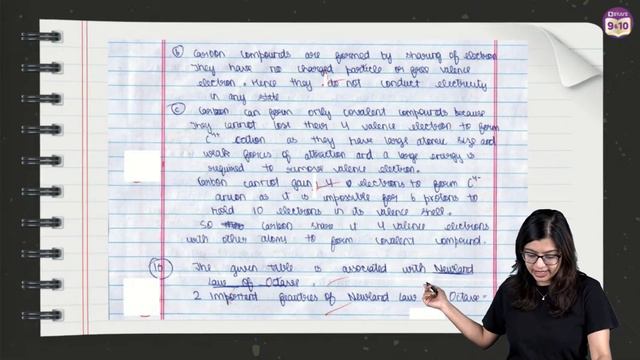 BRAVE
9&10
b) Carbon compounds are formed by sharing of electron
They have no charged particle or free valence
electron. Hence they do not conduct electricity
in any state
c) Carbon can form only covalent compounds because
They cannot lose their 4 valence electron to form
C4+ cation as they have large atomic size and
weak forces of attraction and a large energy is
required to remove valence electron.
Carbon cannot gain 4 electrons to form C4-
anion as it is impossible for 6 protons to
hold 10 electrons in its valence shell.
So carbon share it 4 valence electrons
with other atoms to form covalent compound.
10 The given table is associated with Newland
Law of Octave
2 important features of Newland Law Octave